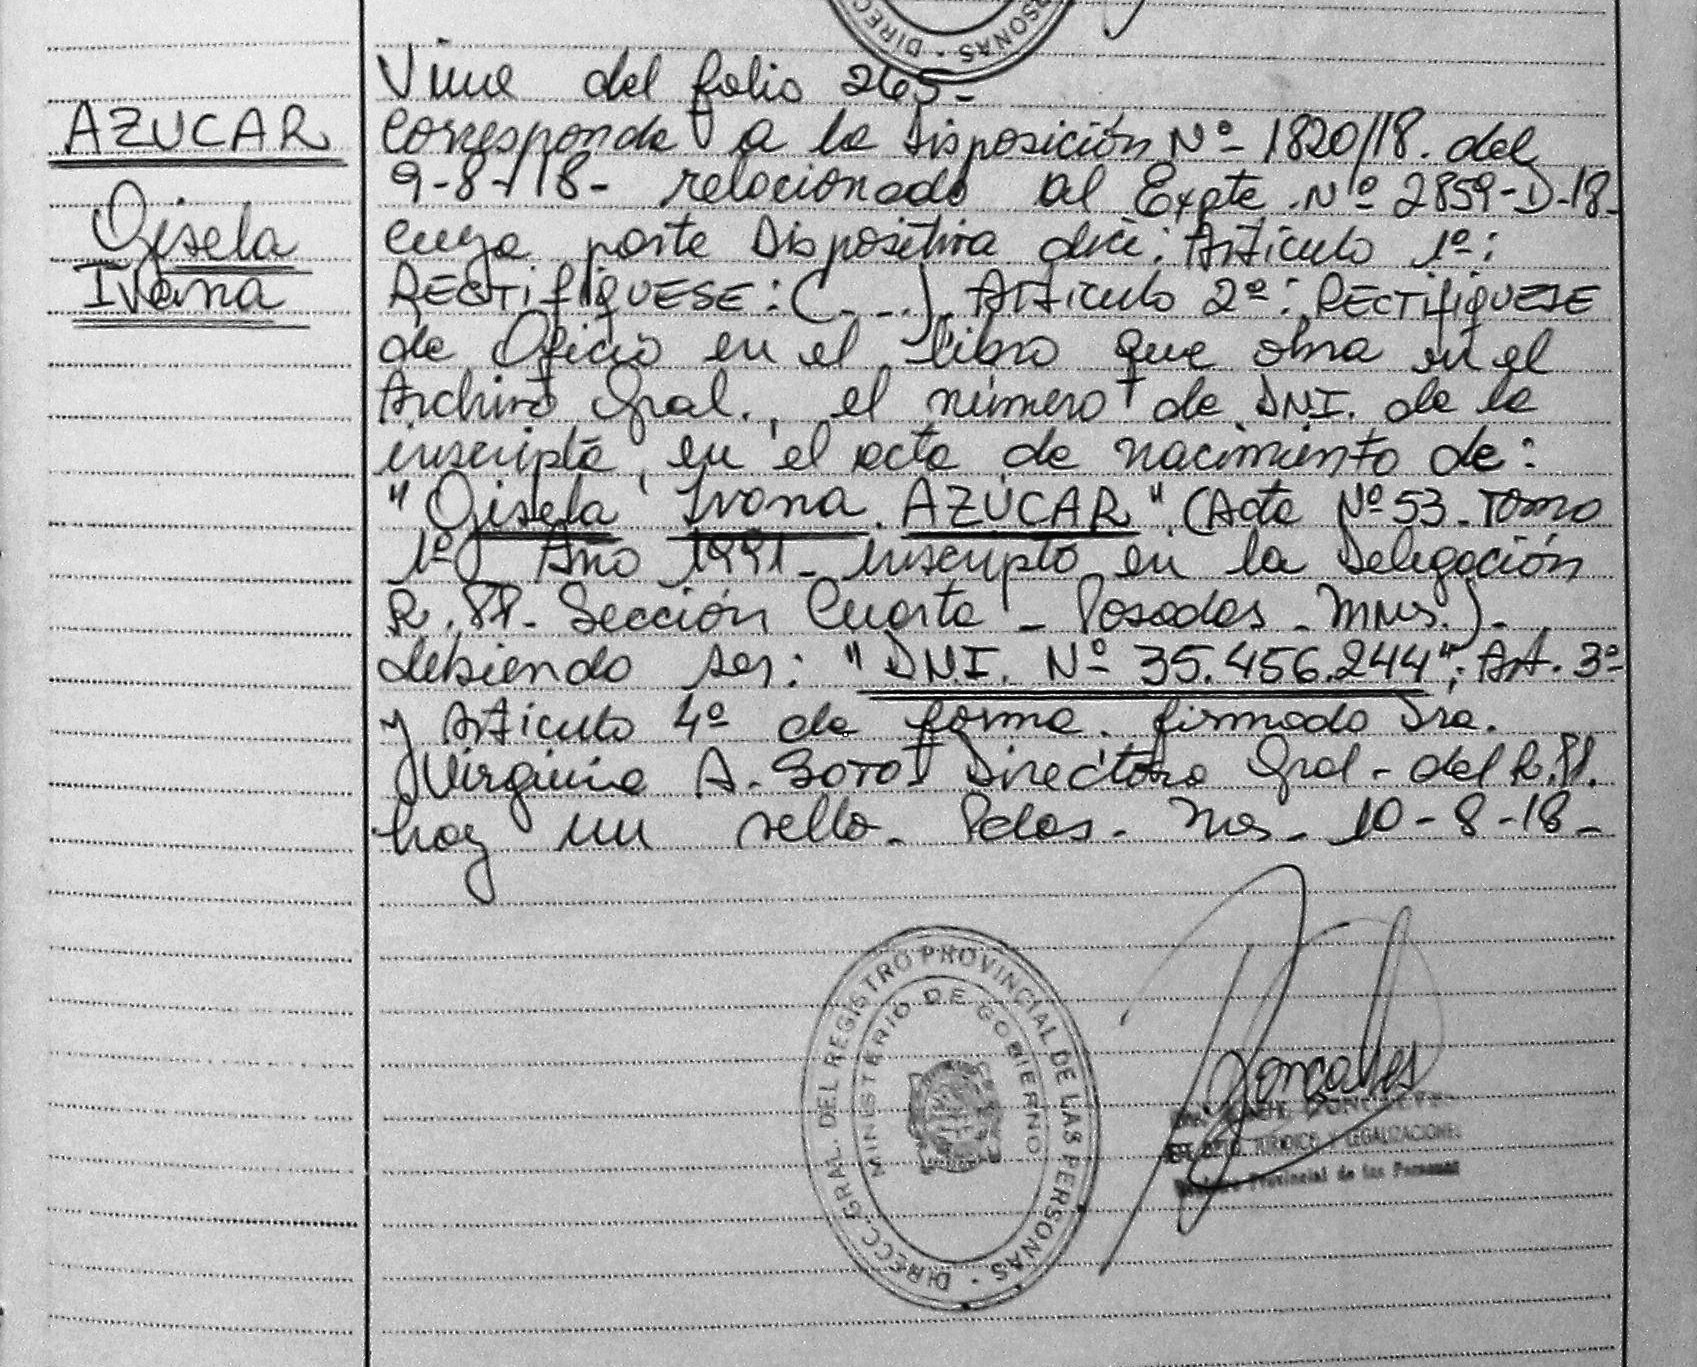 Viene del folio 265-
AZUCAR
Gisela
Ivana
Corresponde a la Disposición Nº 1820/18. del
9-8-18- relacionado al Expte. Nº 2859-D-18-
cuya parte Dispositiva dice: Artículo 1º:
RECTIFIQUESE: (...). Artículo 2º: RECTIFIQUESE
de Oficio en el libro que obra en el
Archivo Gral., el número de DNI. de la
inscripta, en el acta de nacimiento de:
"Gisela Ivana. AZUCAR" (Acta Nº 53. Tomo
1º Año 1991- inscripto en la Delegación
Sección Cuarta - Posadas - Mnes.)-
debiendo ser: "D.N.I. Nº 35.456.244"; Art. 3º
y Artículo 4º de forma. firmado Dra.
Virginia A. SOTO Directora Gral- del
hay un sello- Pdas- Mnes- 10-8-18-
DIRECC. GRAL. DEL REGISTRO PROVINCIAL DE LAS PERSONAS
MINISTERIO DE GOBIERNO
DPTO. JURIDICO Y LEGALIZACIONES
Registro Provincial de las Personas